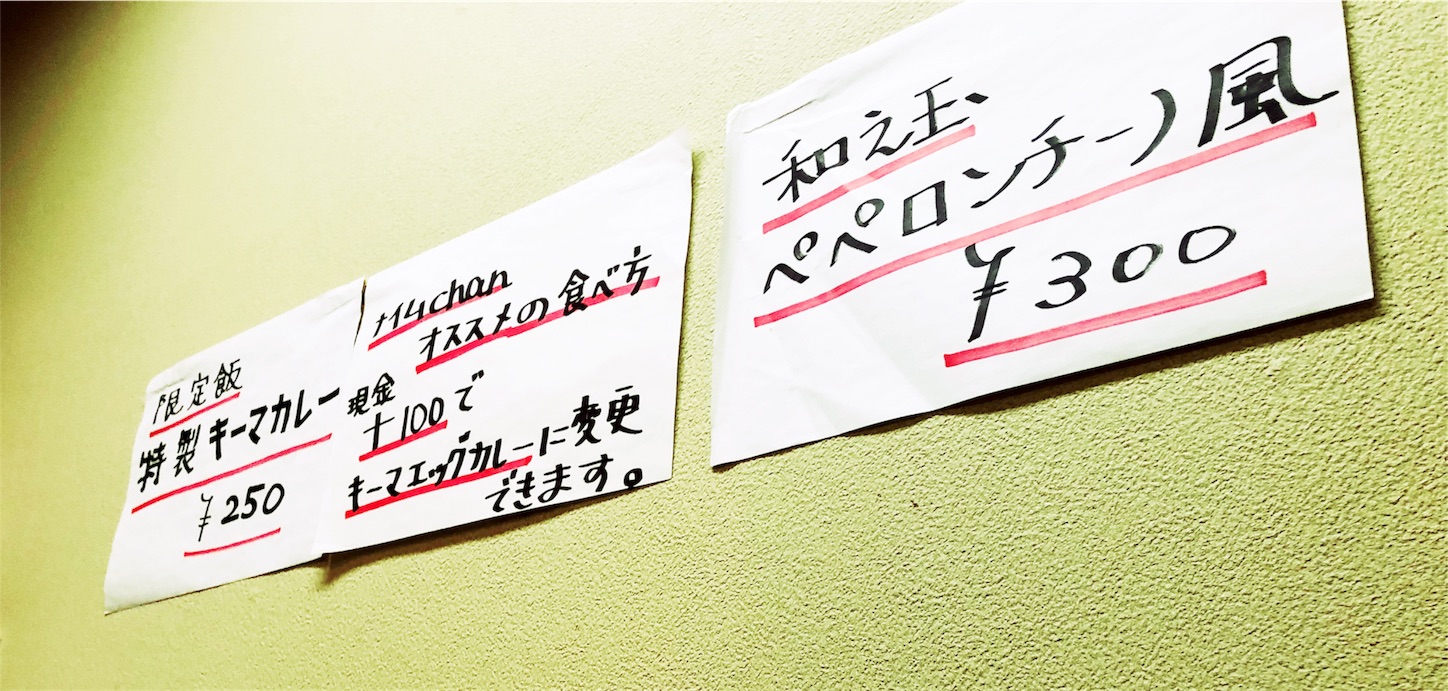 限定飯
特製キーマカレー
¥250
ナイムchan
オススメの食べ方
現金
+100で
キーマエッグカレーに変更
できます。
和え玉
ペペロンチーノ風
¥300